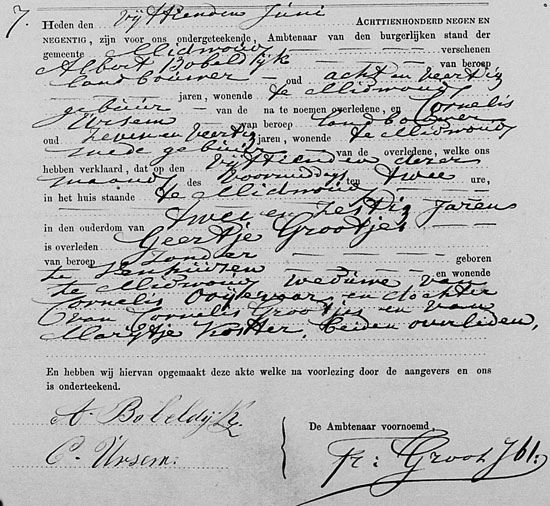 7.
Heden den vijftienden Juni ACHTTIENHONDERD NEGEN EN
NEGENTIG, zijn voor ons ondergeteekende, Ambtenaar van den burgerlijken stand der
gemeente Midwoud verschenen
Albert Bobeldijk van beroep
landbouwer oud acht en veertig
jaren, wonende te Midwoud
gebuur van de na te noemen overledene, en Cornelis
Ursem van beroep landbouwer
oud zeven en veertig jaren, wonende te Midwoud
mede gebuur van de overledene, welke ons
hebben verklaard, dat op den vijftienden dezer
maand des voormiddags ten twee ure,
in het huis staande te Midwoud
in den ouderdom van twee en zestig jaren
is overleden Geertje Grootjes
van beroep zonder geboren
te Benhuizen en wonende
te Midwoud weduwe van
Cornelis Ooijevaar, en dochter
van Cornelis Grootjes en van
Maartje Koster, beiden overleden,
En hebben wij hiervan opgemaakt deze akte welke na voorlezing door de aangevers en ons
is onderteekend.
A. Bobeldijk
C. Ursem.
De Ambtenaar voornoemd,
Pr: Groot Jbz: